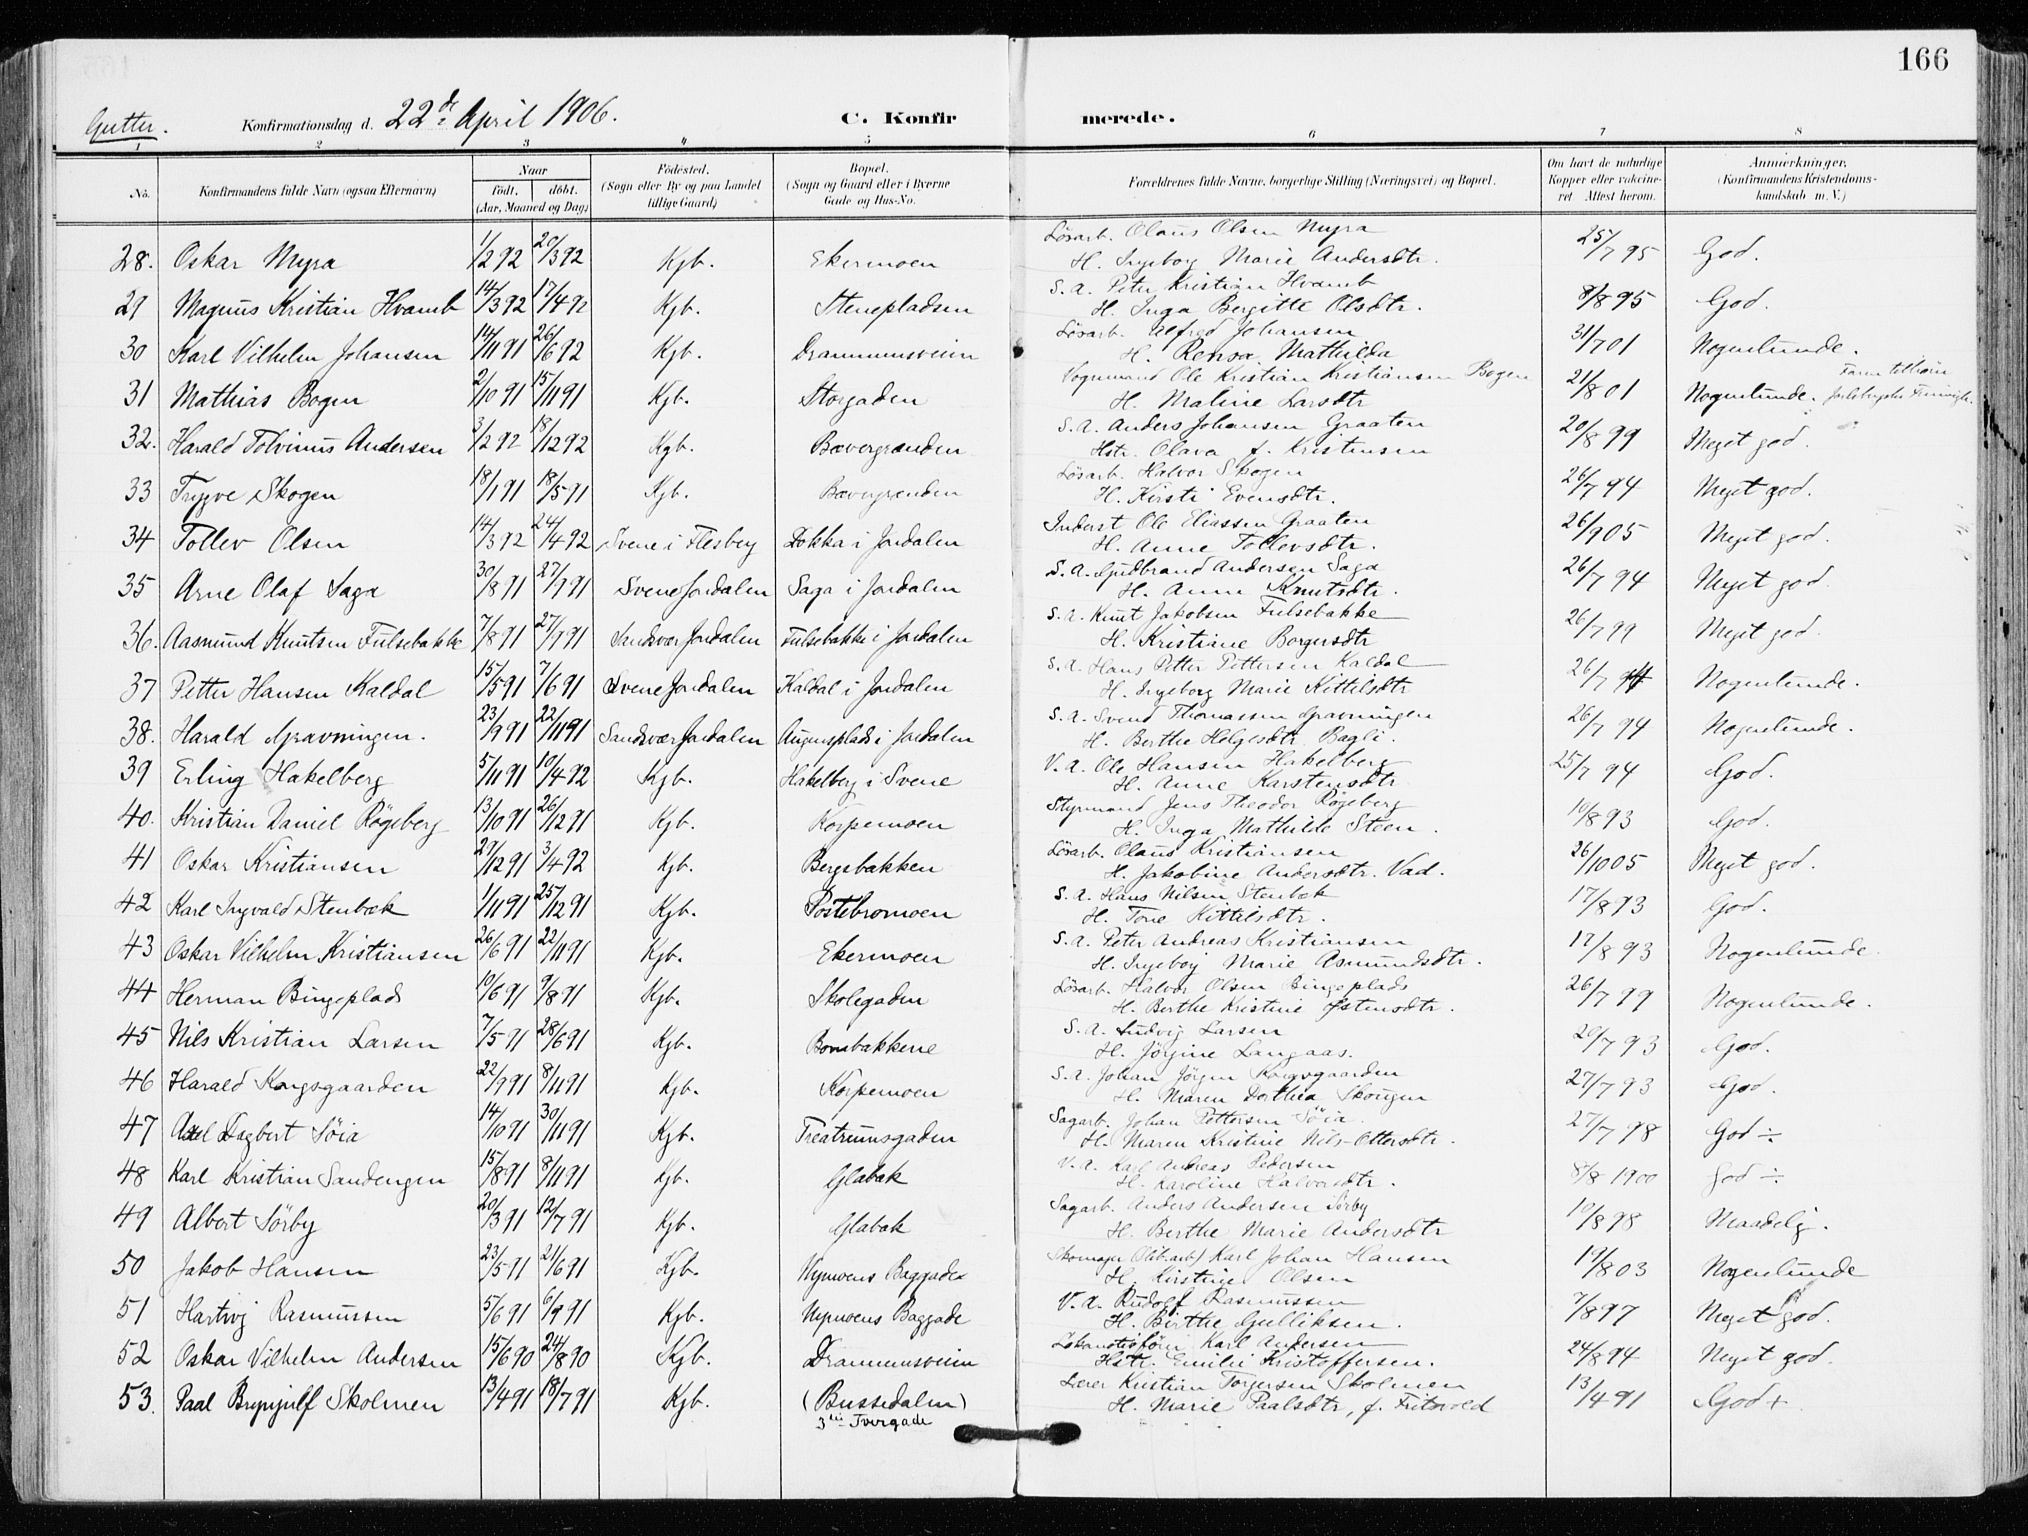 166
Gutter. Konfirmationsdag d. 22de April 1906. C. Konfirmerede.
1 2 3 4 5 6 7 8
No. Konfirmandens fulde Navn (ogsaa Efternavn) Naar født, døbt. (Aar, Maaned og Dag) Fødested. (Sogn eller By og paa Landet tillige Gaard) Bopæl. (Sogn og Gaard eller i Byerne Gade og Hus-No. Forældrenes fulde Navne, borgerlige Stilling (Næringsvei) og Bopæl. Om havt de naturlige Kopper eller vaccineret Attest herom. Anmærkninger. (Konfirmandens Kristendomskundskab m. V.)
Løsarb. Olaus Olsen Myra
28. Oskar Myra 1/2 92 20/3 92 Kgb. Ekermoen H. Ingeborg Marie Andersdtr. 25/7 95 God.
S. A. Peter Kristian Hvamb
29 Magnus Kristian Hvamb 14/3 92 17/4 92 Kgb. Stenepladsen H. Inga Bergitte Olsdtr. 8/8 95 God.
Løsarb. Alfred Johansen
30 Karl Vilhelm Johansen 14/11 91 26/6 92 Kgb. Drammensveien H. Rensa Mathilda 31/7 01 Nogenlunde.
Vognmand Ole Kristian Kristiansen Bogen
31 Mathias Bogen 2/10 91 15/11 91 Kgb. Storgaden H. Maline Larsdtr 21/8 01 Nogenlunde.
S. A. Anders Johansen Graaten
32. Harald Tolvinus Andersen 3/2 92 18/12 92 Kgb. Bævergrænden Hstr. Olava f. Kristensen 20/8 99 Meget god.
Løsarb. Halvor Skogen
33 Trygve Skogen 18/1 91 18/5 91 Kgb. Bævergrenden H. Kirsti Evensdtr. 26/7 94 Meget god.
Inderst Ole Eliassen Graaten
34 Tollev Olsen 14/3 92 24/4 92 Svene i Flesberg Dokka i Jondalen H. Anne Tollevsdtr. 26/9 05 Meget god.
S. A. Gudbrand Andersen Saga
35 Arne Olaf Saga 30/8 91 27/9 91 Svene Jondalen Saga i Jondalen H. Anne Knutsdtr. 26/7 94 Meget god.
S. A. Knut Jakobsen Fulsebakke
36. Aasmund Knutsen Fulsebakke 7/8 91 27/9 91 Sandsvær Jondalen Fulsebakke i Jondalen H. Kristiane Borgersdtr 26/7 99 Meget god.
S. A. Hans Petter Pettersen Kaldal
37 Petter Hansen Kaldal 15/5 91 7/6 91 Svene Jondalen Kaldal i Jondalen H. Ingeborg Marie Kittilsdtr 26/7 94 Nogenlunde.
S. A. Svend Thomassen Gravningen
38. Harald Gravningen. 23/9 91 22/11 91 Sandsvær Jondalen Augensplads i Jondalen H. Berthe Helgesdtr. Bagli. 26/7 94 Nogenlunde.
V. A. Ole Hansen Hakelberg
39 Erling Hakelberg 5/11 91 10/4 92 Kgb. Hakelberg i Svene H. Anne Karstensdtr 25/7 94 God.
Styrmand Jens Theodor Røgeberg
40. Kristian Daniel Røgeberg 13/10 91 26/12 91 Kgb. Korpemoen H. Inga Mathilde Steen. 10/8 93 God.
Løsarb. Olaus Kristiansen
41 Oskar Kristiansen 27/12 91 3/4 92 Kgb. Bergsbakken H. Jakobine Andersdtr. Vad. 26/10 05 Meget god.
S. A. Hans Nilsen Stenbæk
42 Karl Ingvald Stenbæk 1/11 91 25/12 91 Kgb. Postebromoen H. Tone Kittilsdtr. 17/8 93 God.
S. A. Peter Andreas Kristiansen
43 Oskar Vilhelm Kristiansen 26/6 91 22/11 91 Kgb. Ekermoen H. Ingeborg Marie Asmundsdtr. 17/8 93 Nogenlunde.
Løsarb. Halvor Olsen Bingeplads
44 Herman Bingeplads 10/6 91 9/8 91 Kgb. Skolegaden H. Berthe Kristine Østensdtr. 26/7 99 Nogenlunde.
S. A. Ludvig Larsen
45 Nils Kristian Larsen 7/5 91 28/6 91 Kgb. Bombakkene H. Jørgine Langaas. 20/7 93 God.
S. A. Johan Jørgen Kongsgaarden
46 Harald Kongsgaarden 22/9 91 8/11 91 Kgb. Korpemoen H. Maren Dorthea Skougen 27/7 93 God.
Sagarb. Johan Pettersen Søia
47 Axel Dagbert Søia 14/10 91 30/11 91 Kgb. Treatrumsgaden H. Maren Kristine Nils-Ottersdtr. 27/7 98 God ÷
V. A. Karl Andreas Pedersen
48 Karl Kristian Sandengen 15/8 91 8/11 91 Kgb. Glabak H. Karoline Halvorsdtr. 8/8 1900 God ÷
Sagarb. Anders Andersen Sørby
49 Albert Sørby 20/3 91 12/7 91 Kgb. Glabak H. Berthe Marie Andersdtr 10/8 98 Maadelig.
Skomager Karl Johan Hansen
50 Jakob Hansen 23/5 91 21/6 91 Kgb. Nymoens Baggade H. Kirstine Olsen 19/8 03 Nogenlunde
V. A. Rudolf Rasmussen
51 Hartvig Rasmussen 5/6 91 6/9 91 Kgb. Nymoens Baggade H. Birthe Gulliksen. 7/8 97 Meget god.
Karl Andersen
52 Oskar Vilhelm Andersen 15/6 90 24/8 90 Kgb. Drammensveien Hstr. Emilie Kristoffersen. 24/8 94 Meget god.
Lærer Kristian Torgersen Skolmen
53. Paal Brynjulf Skolmen 13/4 91 18/7 91 Kgb. (Bussedalen) H. Marie Paalsdtr, f. Fritsvold 13/4 91 God +
3die Tvergade